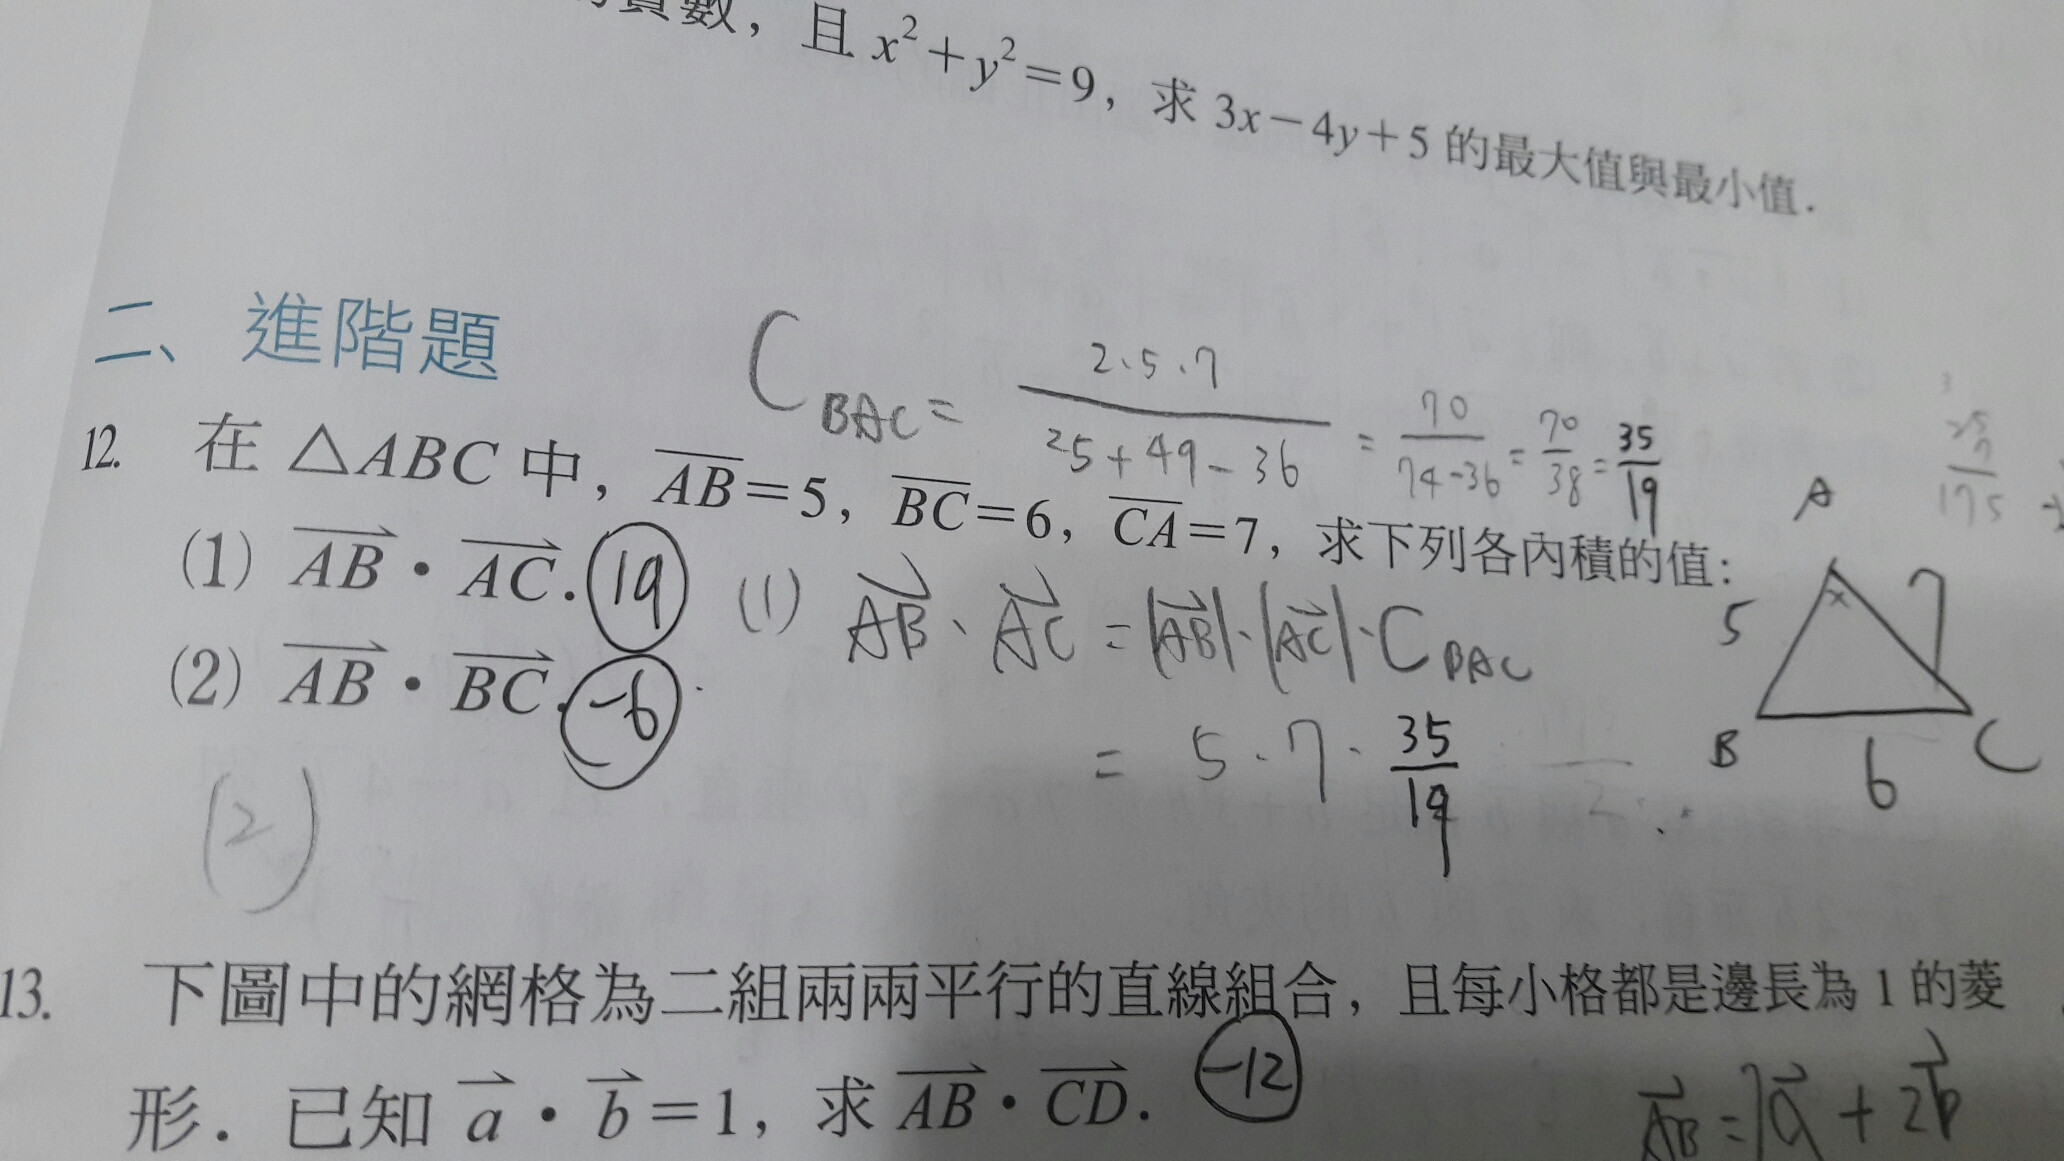 實數，且 x²+y²=9，求 3x－4y+5 的最大值與最小值．
二、進階題
C BAC = 2·5·7 / 25+49-36 = 70 / 74-36 = 70/38 = 35/19
12. 在 △ABC 中，AB=5，BC=6，CA=7，求下列各內積的值：
(1) AB・AC. 19
(1) AB · AC = |AB|·|AC|·C BAC
(2) AB・BC. -6
= 5·7·35/19
A
5
7
B
6
C
25
7
175
(2)
13. 下圖中的網格為二組兩兩平行的直線組合，且每小格都是邊長為 1 的菱
形．已知 a・b=1，求 AB・CD． -12
AB = a + 2b